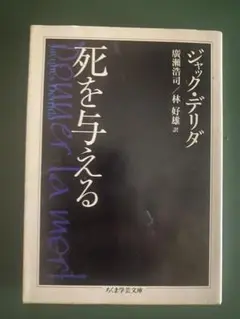 ジャック・デリダ
廣瀬浩司／林 好雄 訳
死を与える
donner la mort
ちくま学芸文庫